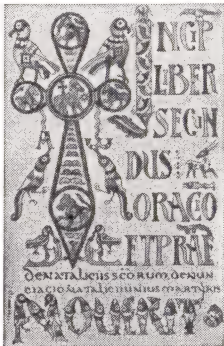 INCIP
LIBER
SECUN
DUS
ORACIO
ET PRAE
denataliciis scorum. denun
ciacio natalicii unius martyris